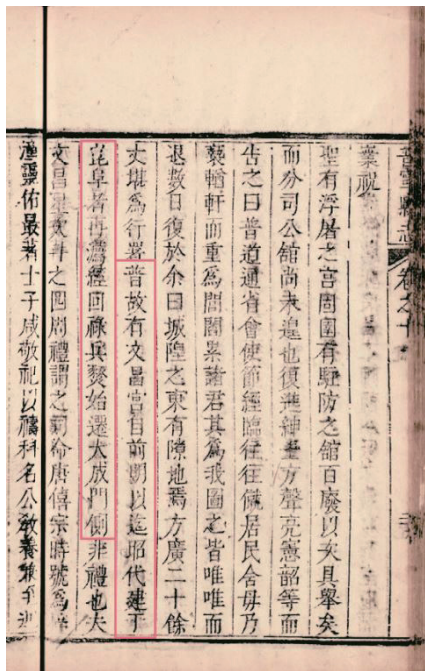 普宁縣志 卷之十
業祝
聖有浮屠之宮固圉有駐防之舘百廢以矣具舉矣
而分司公舘尚未遑也復進紳耆方聲亮憲韶等而
告之曰普道通省會使節經臨往往僦居民舍毋乃
褻輶軒而重為閭閻累諸君其為我圖之皆唯唯而
退數日復於余曰城隍之東有隙地焉方廣二十餘
丈堪為行署普故有文昌宮目前明以迄昭代建于
崑阜者再焉經回祿兵燹始遷大成門側非禮也夫
文昌星
之四周禮謂之司命唐僖宗時號為
靈佑最著士子咸敬祀以禱科名公敎養兼至